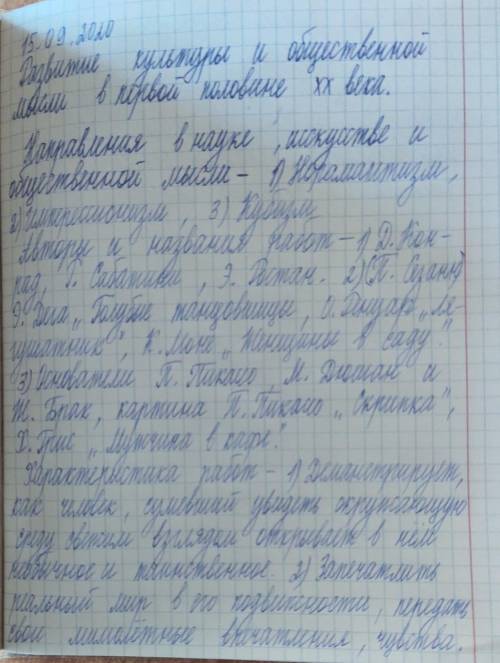 15.09.2020
Развитие культуры и общественной
мысли в первой половине XX века.
Направления в науке, искусстве и
общественной мысли - 1) Неромантизм,
2) Импрессионизм, 3) Кубизм
Авторы и названия работ - 1) Д. Кон-
рад, Г. Сабатини, Э. Ростан. 2) (П. Сезанн)
Э. Дега „Голубые танцовщицы", О. „Ля-
гушатник", К. Моне „Женщины в саду".
3) Основатели П. Пикассо, М. и
Ж. Брак, картина П. Пикассо „Скрипка",
Х. Грис „Мужчина в кафе".
Характеристика работ - 1) Демонстрирует,
как человек, сумевший увидеть окружающую
среду свежим взглядом открывает в нём
необычное и таинственное. 2) Запечатлить
реальный мир в его подвижности, передать
свои мимолётные впечатления, чувства.